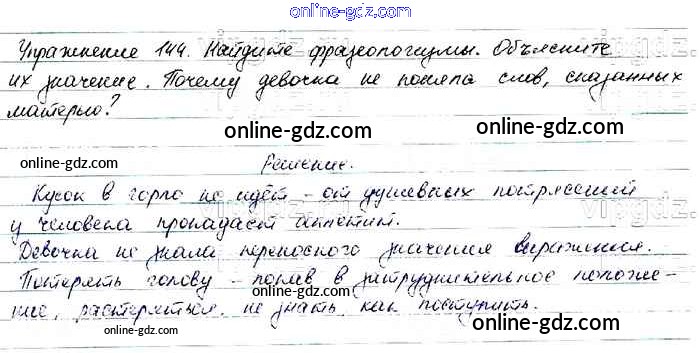 online-gdz.com
Упражнение 144. Найдите фразеологизмы. Объясните
их значение. Почему девочка не поняла слов, сказанных
матерью?
online-gdz.com online-gdz.com
online-gdz.com Решение. vipgdz
Кусок в горло не идёт - от душевных потрясений
у человека пропадает аппетит.
online-gdz.com online-gdz.com
Девочка не знала переносного значения выражения.
Потерять голову - попав в затруднительное положе-
ние, растеряться, не знать, как поступить.
online-gdz.com online-gdz.com
online-gdz.com